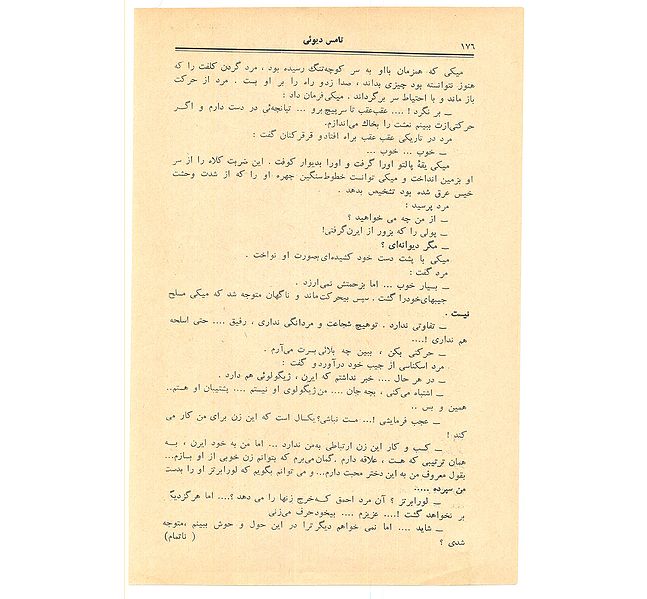 ۱۷۶
تامس دیوئی
میکی که همزمان بااو به سر کوچه‌تنگ رسیده بود ، مرد گردن کلفت را که
هنوز نتوانسته بود چیزی بداند ، صدا زدو راه را بر او بست . مرد از حرکت
باز ماند و با احتیاط سر برگرداند . میکی فرمان داد :
ــ بر نگرد ! .... عقب‌عقب تا سرپیچ برو ... تپانچه‌ئی در دست دارم و اگر
حرکتی‌ازت ببینم نعشت را بخاك می‌اندازم.
مرد در تاریکی عقب عقب براه افتادو قرقرکنان گفت :
ــ خوب ... خوب ...
میکی یقهٔ پالتو اورا گرفت و اورا بدیوار کوفت . این ضربت کلاه را از سر
او بزمین انداخت و میکی توانست خطوط‌سنگین چهره او را که از شدت وحشت
خیس عرق شده بود تشخیص بدهد .
مرد پرسید :
ــ از من چه می خواهید ؟
ــ پولی را که بزور از ایرن‌گرفتی!
ــ مگر دیوانه‌ای ؟
میکی با پشت دست خود کشیده‌ای‌بصورت او نواخت .
مرد گفت :
ــ بسیار خوب ... اما بزحمتش نمی‌ارزد .
جیبهای‌خودرا گشت . سپس بیحرکت‌ماند و ناگهان متوجه شد که میکی مسلح
نیست .
ــ تفاوتی ندارد . توهیچ شجاعت و مردانگی نداری ، رفیق .... حتی اسلحه
هم نداری !....
ــ حرکتی بکن ، ببین چه بلائی‌بسرت می‌آرم .
مرد اسکناسی از جیب خود درآورد و گفت :
ــ در هر حال .... خبر نداشتم که ایرن ، ژیگولوئی هم دارد .
ــ اشتباه می‌کنی ، بچه‌جان .... من‌ژیگولوی او نیستم .... پشتیبان او هستم..
همین و بس ..
ــ عجب فرمایشی !... مست نباشی؟ یکسال است که این زن برای من کار می
کند !
ــ کسب و کار این زن ارتباطی به‌من ندارد ... اما من به خود ایرن ، بــه
همان ترتیبی که هست ، علاقه دارم . گمان‌می‌برم که بتوانم زن خوبی از او بسازم...
بقول معروف من به این دختر محبت دارم... و می توانم بگویم که لورابرتز او را بدست
من سپرده .....
ــ لورابرتز ؟ آن مرد احمق کـه‌خرج زنها را می دهد ؟.... اما هرگزدیگر
بر نخواهد گشت !.... عزیزم .... بیخودحرف می‌زنی
ــ شاید .... اما نمی خواهم دیگر ترا در این حول و حوش ببینم ،متوجه
شدی ؟
( ناتمام)